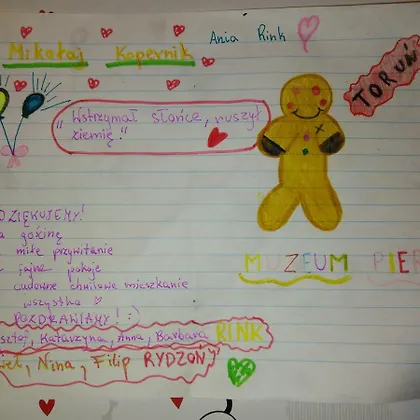 Mikołaj Kopernik
Ania Rink
TORUŃ
„Wstrzymał słońce, ruszył
ziemię."
DZIĘKUJEMY!
gościnę
miłe przywitanie
fajne pokoje
cudowne chwilowe mieszkanie
wszystko
POZDRAWIAMY! :)
Katarzyna, Anna, Barbara RINK
Nina, Filip RYDZOŃ
MUZEUM PIER